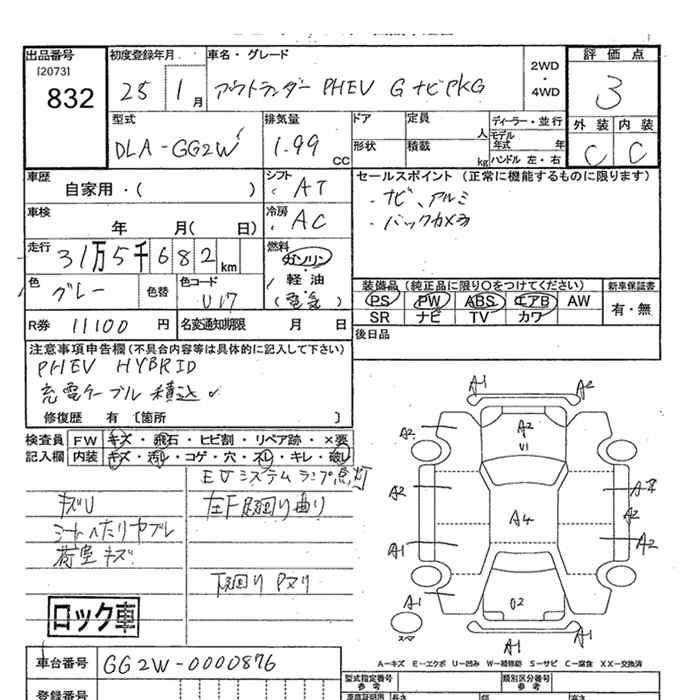 出品番号 初度登録年月 車名・グレード 2WD・4WD 評価点
[2073] 832 25 1月 アウトランダー PHEV G ナビPKG 3
型式 排気量 ドア 定員 人 ディーラー・並行 外装 内装
DLA-GG2W 1.99 CC 形状 積載 kg モデル年式 年 ハンドル 左・右 C C
車歴 自家用・( ) シフト AT セールスポイント (正常に機能するものに限ります)
車検 年 月( 日) 冷房 AC ・ナビ、アルミ
・バックカメラ
走行 31万5千682km 燃料 ガソリン・軽油(電気)
色 グレー 色替 色コード U17 装備品 (純正品に限り〇をつけてください) 新車保証書
PS PW ABS エアB AW 有・無
SR ナビ TV カワ
R券 11100円 名変通知期限 月 日 後日品
注意事項申告欄(不具合内容等は具体的に記入して下さい)
PHEV HYBRID
充電ケーブル積込
修復歴 有 [箇所 ]
検査員 FW キズ・飛石・ヒビ割・リペア跡・×要
記入欄 内装 キズ・汚レ・コゲ・穴・スレ・キレ・破レ
EVシステムランプ点灯
キズU 左F足廻り曲り
シートヘタリヤブレ
荷室キズ
下廻りPヌリ
ロック車
A1 A2
A2 A2 U1
A2 A4 A2
A1 A2
A1 U2
スペア A1 A1
A-キズ E-エクボ U-凹み W-補修跡 S-サビ C-腐食 XX-交換済
車台番号 GG2W-0000876 型式指定番号 参考 類別区分番号 参考
登録番号 長さ 幅 高さ